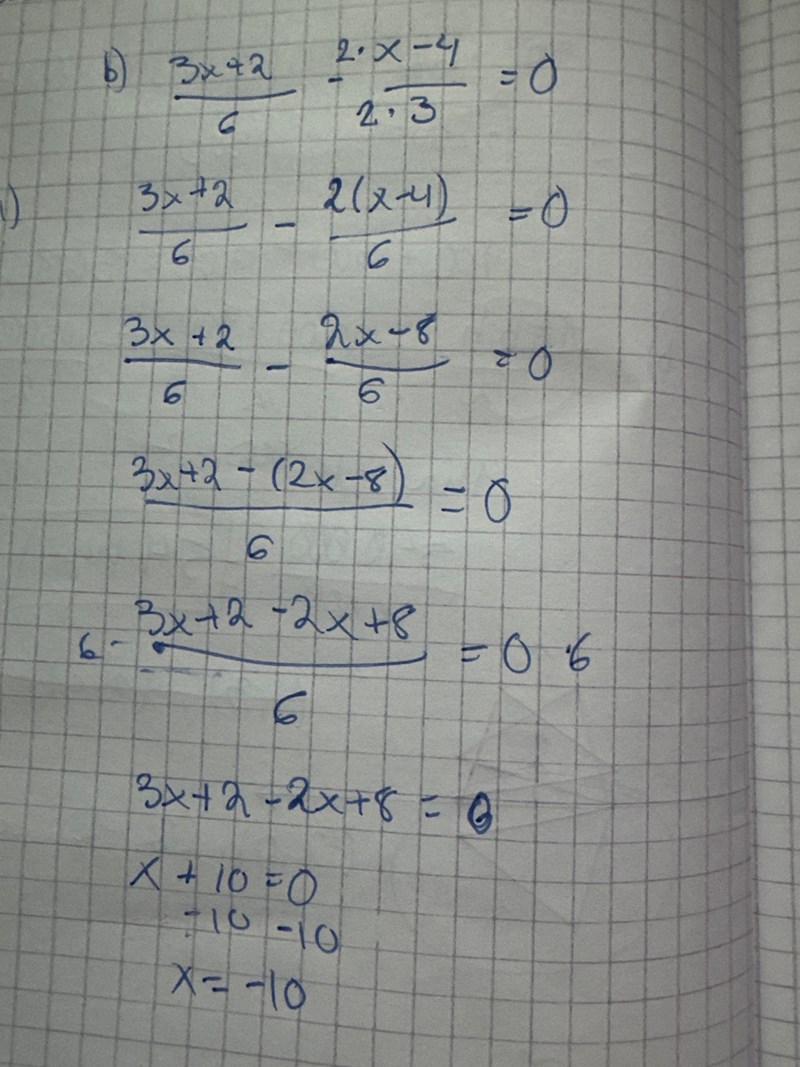 b) (3x+2)/6 - (2·x-4)/(2·3) = 0
(3x+2)/6 - (2(x-4))/6 = 0
(3x+2)/6 - (2x-8)/6 = 0
(3x+2-(2x-8))/6 = 0
6· (3x+2-2x+8)/6 = 0 ·6
3x+2-2x+8 = 0
x + 10 = 0
-10 -10
x = -10